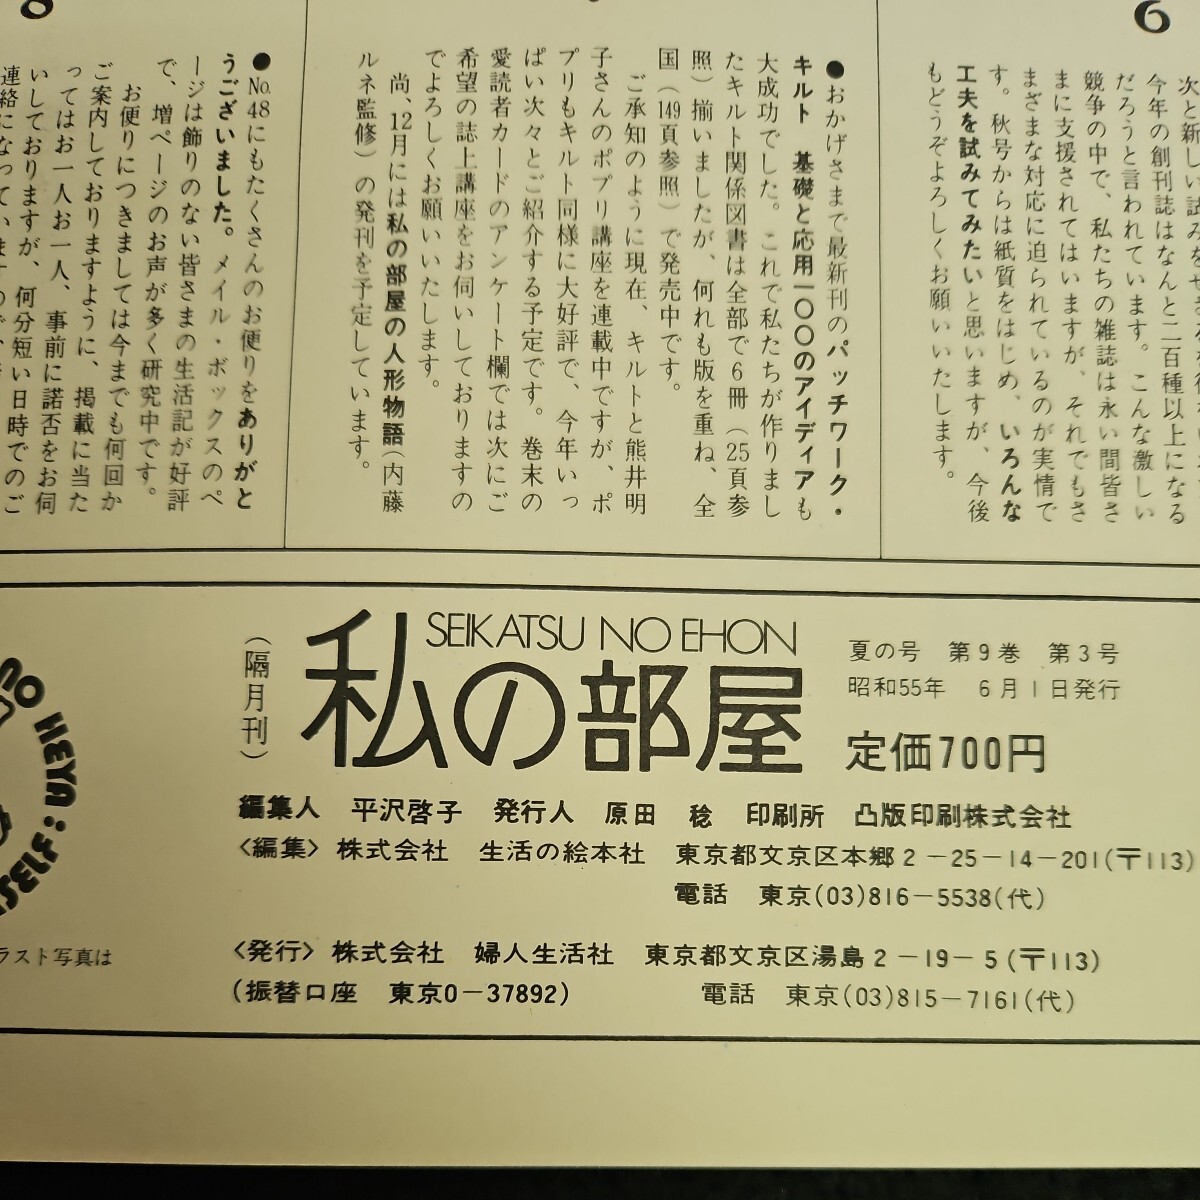 8
6
次と新しい試みをせ
今年の創刊誌はなんと二百種以上になる
だろうと言われています。こんな激しい
競争の中で、私たちの雑誌は永い間皆さ
まに支援されてはいますが、それでもさ
まざまな対応に迫られているのが実情で
す。秋号からは紙質をはじめ、いろんな
工夫を試みてみたいと思いますが、今後
もどうぞよろしくお願いいたします。
●おかげさまで最新刊のパッチワーク・
キルト 基礎と応用一〇〇のアイディアも
大成功でした。これで私たちが作りまし
たキルト関係図書は全部で6冊(25頁参
照)揃いましたが、何れも版を重ね、全
国(149頁参照)で発売中です。
ご承知のように現在、キルトと熊井明
子さんのポプリ講座を連載中ですが、ポ
プリもキルト同様に大好評で、今年いっ
ぱい次々とご紹介する予定です。巻末の
愛読者カードのアンケート欄では次にご
希望の誌上講座をお伺いしておりますの
でよろしくお願いいたします。
尚、12月には私の部屋の人形物語(内藤
ルネ監修)の発刊を予定しています。
●No.48にもたくさんのお便りをありがと
うございました。メイル・ボックスのペ
ージは飾りのない皆さまの生活記が好評
で、増ページのお声が多く研究中です。
お便りにつきましては今までも何回か
ご案内しておりますように、掲載に当た
ってはお一人お一人、事前に諾否をお伺
いしておりますが、何分短い日時でのご
連絡になっていますので、
(隔月刊)
SEIKATSU NO EHON
私の部屋
夏の号 第9巻 第3号
昭和55年 6月1日発行
定価700円
編集人 平沢啓子 発行人 原田 稔 印刷所 凸版印刷株式会社
<編集> 株式会社 生活の絵本社 東京都文京区本郷2-25-14-201(〒113)
電話 東京(03)816-5538(代)
<発行> 株式会社 婦人生活社 東京都文京区湯島2-19-5(〒113)
(振替口座 東京0-37892) 電話 東京(03)815-7161(代)
NO HEYA:
ラスト写真は